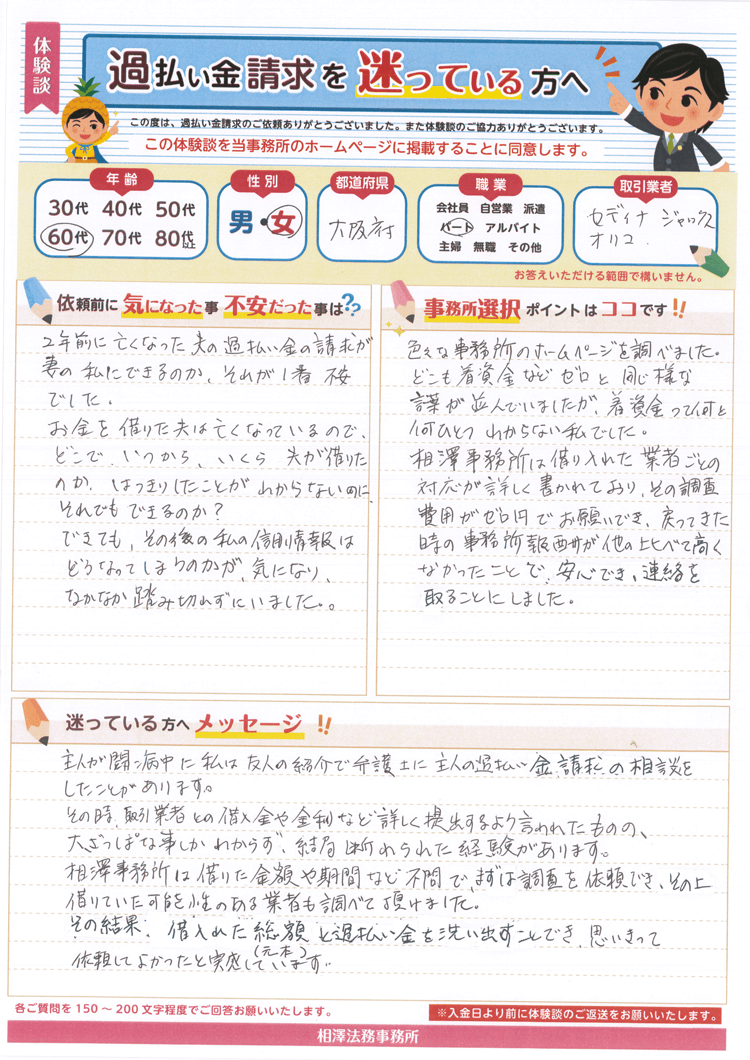 体験談
過払い金請求を迷っている方へ
この度は、過払い金請求のご依頼ありがとうございました。また体験談のご協力ありがとうございます。
この体験談を当事務所のホームページに掲載することに同意します。
年齢
30代 40代 50代
60代 70代 80代以上
性別
男・女
都道府県
大阪府
職業
会社員 自営業 派遣
パート アルバイト
主婦 無職 その他
取引業者
セディナ ジャックス
オリコ
お答えいただける範囲で構いません。
依頼前に気になった事 不安だった事は??
2年前に亡くなった夫の過払い金の請求が
妻の私にできるのか、それが1番不安
でした。
お金を借りた夫は亡くなっているので、
どこで、いつから、いくら 夫が借りた
のか、はっきりしたことがわからないのに、
それでもできるのか?
できても、その後の私の信用情報は
どうなってしまうのかが、気になり、
なかなか踏み切れずにいました。
事務所選択ポイントはココです!!
色々な事務所のホームページを調べました。
どこも着資金などゼロと同じ様な
言葉が並んでいましたが、着資金って何と
何ひとつわからない私でした。
相澤事務所は借り入れた業者ごとの
対応が詳しく書かれており、その調査
費用がゼロ円でお願いでき、戻ってきた
時の事務所報酬が他の比べて高く
なかったことで、安心でき、連絡を
取ることにしました。
迷っている方へメッセージ!!
主人が闘病中に私は友人の紹介で弁護士に主人の過払い金請求の相談を
したことがあります。
その時、取引業者との借入金や金利など詳しく提出するよう言われたものの、
大ざっぱな事しかわからず、結局断わられた経験があります。
相澤事務所は借りた金額や期間など不問で、まずは調査を依頼でき、その上
借りていた可能性のある業者も調べて頂けました。
その結果、借入れた総額と過払い金を洗い出すことができ、思いきって
(元本)
依頼してよかったと実感しています。
各ご質問を150～200文字程度でご回答お願いいたします。
※入金日より前に体験談のご返送をお願いいたします。
相澤法務事務所